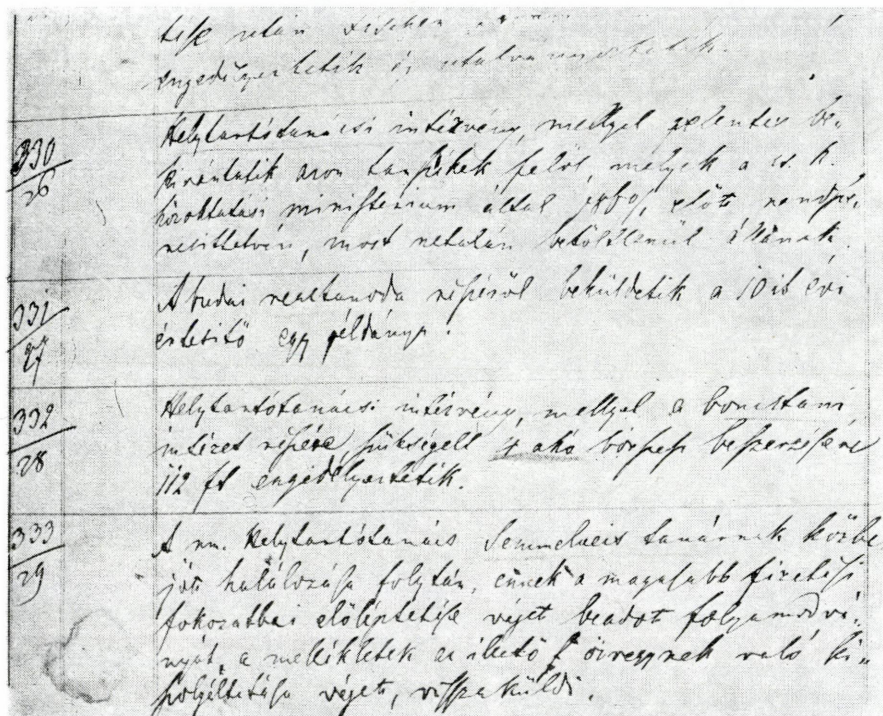 tése után
engedélyeztetik és utalványoztatik.
330
26
Helytartótanácsi intézvény, mellyel jelentés be-
kivántatik azon tanszékek felől, melyek a cs. k.
közoktatási ministerium által 1860/1 előtt rendsze-
resittetvén, most netalán betöltlenül állanak.
331
27
A budai realtanoda részéről beküldetik a 10ik évi
értesitő egy példánya.
332
28
Helytartótanácsi intézvény, mellyel a boncztani
intézet részére szükségelt akó borszesz beszerzésére
112 ft engedélyeztetik.
333
29
A nm. Helytartótanács Semmelweis tanárnak közbe
jött halálozása folytán, ennek a magasabb fizetési
fokozatbai előléptetése végett beadott folyamodvá-
nyát, a mellékletek az illető özvegynek való ki-
szolgáltatása végett, visszaküldi.